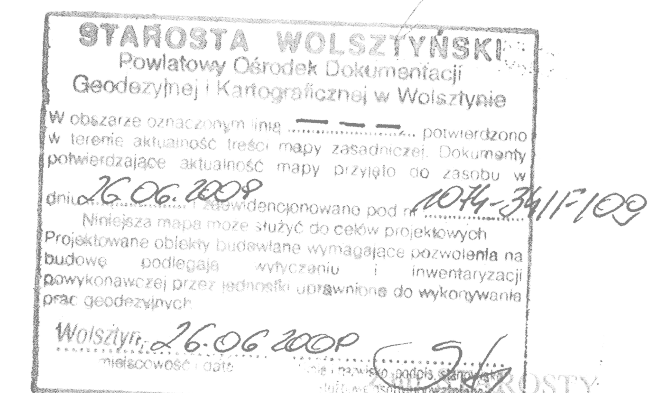 STAROSTA WOLSZTYŃSKI
Powiatowy Ośrodek Dokumentacji
Geodezyjnej i Kartograficznej w Wolsztynie
W obszarze oznaczonym linią — — — potwierdzono
w terenie aktualność treści mapy zasadniczej. Dokumenty
potwierdzające aktualność mapy przyjęto do zasobu w
dniu 26.06.2009 i zaewidencjonowano pod nr 1074-34/F/09
Niniejsza mapa może służyć do celów projektowych
Projektowane obiekty budowlane wymagające pozwolenia na
budowę podlegają wytyczeniu i inwentaryzacji
powykonawczej przez jednostki uprawnione do wykonywania
prac geodezyjnych
Wolsztyn, 26.06 2009
miejscowość i data imię i nazwisko podpis stanowisko
STAROSTY